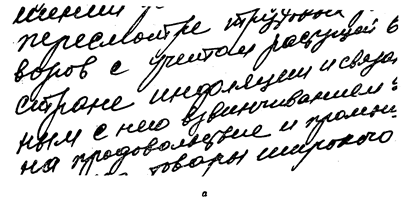 пересмотре трудовых
воров с учетом растущей в
стране инфляции и связан
ным с нею взвинчиванием
на продовольствие и промыш
товары широкого
а